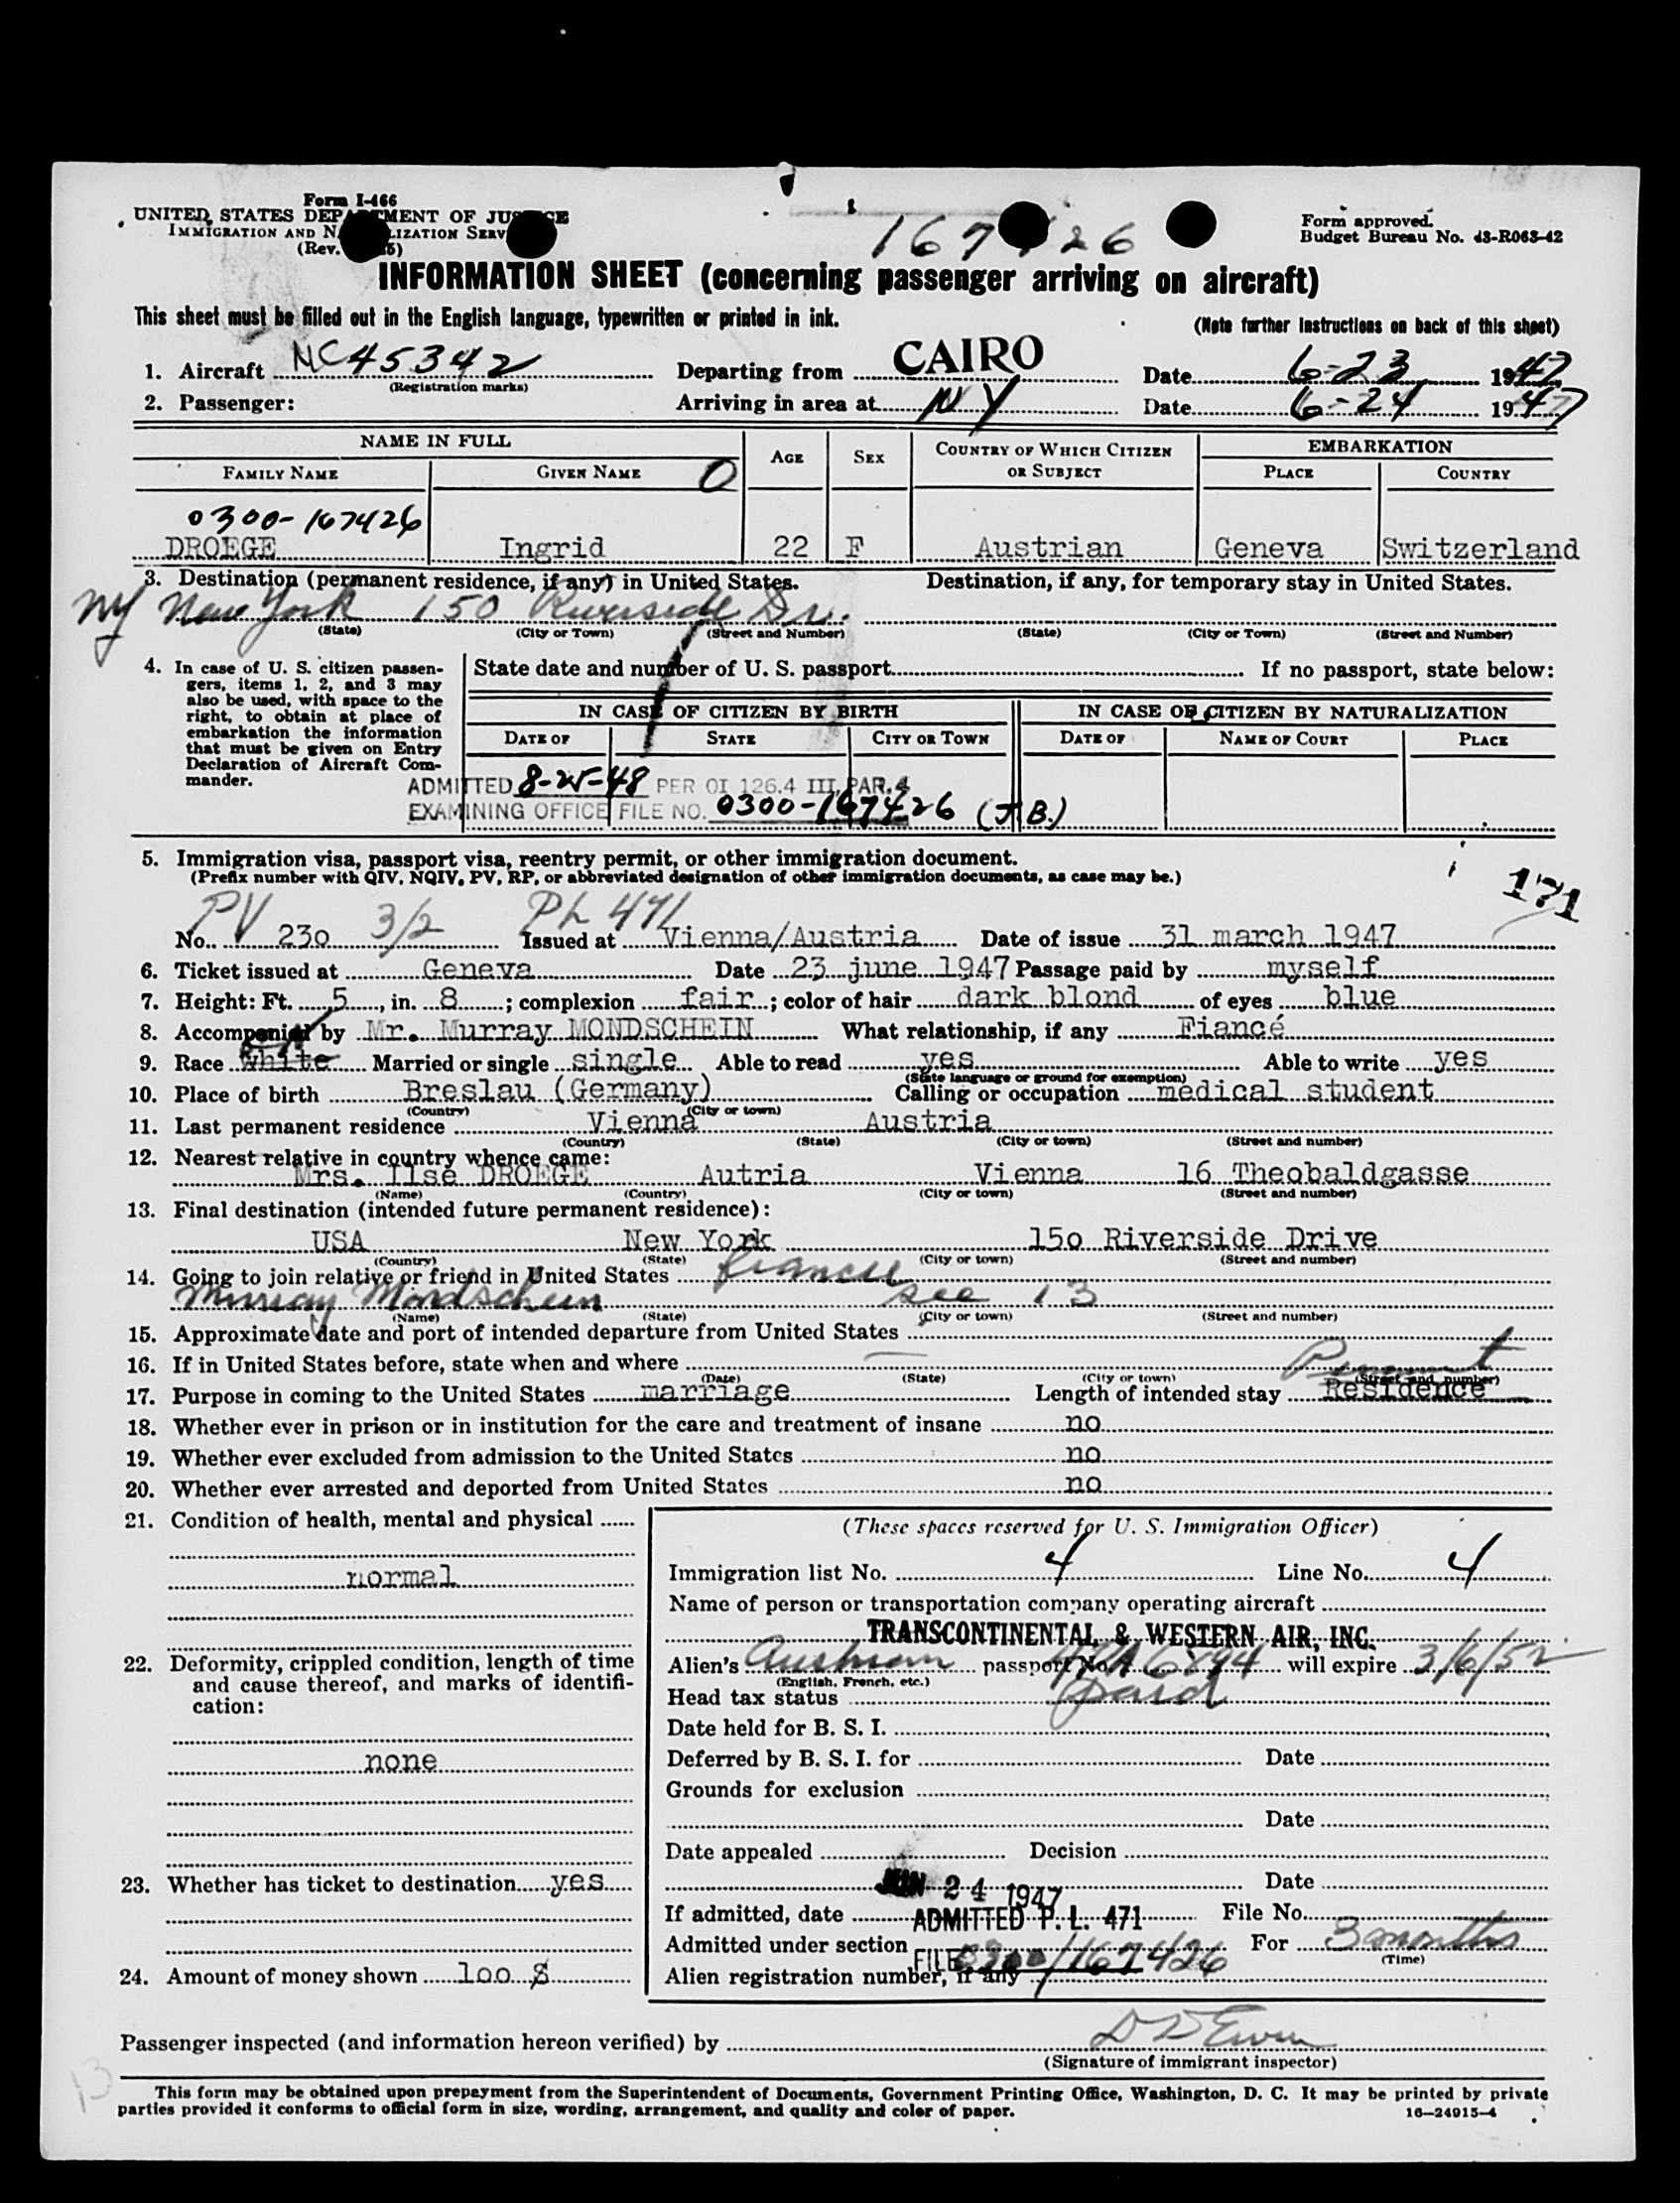 Form I-466
UNITED STATES DEPARTMENT OF JUSTICE
IMMIGRATION AND NATURALIZATION SERV
(Rev.
167426
Form approved.
Budget Bureau No. 43-R063-42
INFORMATION SHEET (concerning passenger arriving on aircraft)
This sheet must be filled out in the English language, typewritten or printed in ink.
(Note further instructions on back of this sheet)
1. Aircraft NC45342 Departing from CAIRO Date 6-23 1947
(Registration marks)
2. Passenger: Arriving in area at NY Date 6-24 1947
NAME IN FULL
AGE SEX COUNTRY OF WHICH CITIZEN OR SUBJECT EMBARKATION
FAMILY NAME GIVEN NAME O PLACE COUNTRY
0300-167426
DROEGE Ingrid 22 F Austrian Geneva Switzerland
3. Destination (permanent residence, if any) in United States. Destination, if any, for temporary stay in United States.
NY New York 150 Riverside Dr.
(State) (City or Town) (Street and Number) (State) (City or Town) (Street and Number)
4. In case of U. S. citizen passen-
gers, items 1, 2, and 3 may
also be used, with space to the
right, to obtain at place of
embarkation the information
that must be given on Entry
Declaration of Aircraft Com-
mander.
State date and number of U. S. passport If no passport, state below:
IN CASE OF CITIZEN BY BIRTH IN CASE OF CITIZEN BY NATURALIZATION
DATE OF STATE CITY OR TOWN DATE OF NAME OF COURT PLACE
ADMITTED 8-25-48 PER OI 126.4 III, PAR. 4
EXAMINING OFFICE FILE NO. 0300-167426 (J.B.)
5. Immigration visa, passport visa, reentry permit, or other immigration document.
(Prefix number with QIV, NQIV, PV, RP, or abbreviated designation of other immigration documents, as case may be.)
171
PV 3/2 PL 471
No. 230 Issued at Vienna/Austria Date of issue 31 march 1947
6. Ticket issued at Geneva Date 23 june 1947 Passage paid by myself
7. Height: Ft. 5, in. 8; complexion fair; color of hair dark blond of eyes blue
8. Accompanied by Mr. Murray MONDSCHEIN What relationship, if any Fiancé
9. Race white Married or single single Able to read yes Able to write yes
(State language or ground for exemption)
10. Place of birth Breslau (Germany) Calling or occupation medical student
(Country) (City or town)
11. Last permanent residence Vienna Austria
(Country) (State) (City or town) (Street and number)
12. Nearest relative in country whence came:
Mrs. Ilse DROEGE Autria Vienna 16 Theobaldgasse
(Name) (Country) (City or town) (Street and number)
13. Final destination (intended future permanent residence):
USA New York 150 Riverside Drive
(Country) (State) (City or town) (Street and number)
14. Going to join relative or friend in United States
Murray Mondschein see 13
(Name) (State) (City or town) (Street and number)
15. Approximate date and port of intended departure from United States
16. If in United States before, state when and where
(Date) (State) (City or town) (Street and number)
17. Purpose in coming to the United States marriage Length of intended stay Residence
18. Whether ever in prison or in institution for the care and treatment of insane no
19. Whether ever excluded from admission to the United States no
20. Whether ever arrested and deported from United States no
21. Condition of health, mental and physical
normal
22. Deformity, crippled condition, length of time
and cause thereof, and marks of identifi-
cation:
none
23. Whether has ticket to destination yes
24. Amount of money shown 100 $
(These spaces reserved for U. S. Immigration Officer)
Immigration list No. 4 Line No. 4
Name of person or transportation company operating aircraft
TRANSCONTINENTAL & WESTERN AIR, INC.
Alien's Austrian passport No. will expire 3/6/52
(English, French, etc.)
Head tax status paid
Date held for B. S. I.
Deferred by B. S. I. for Date
Grounds for exclusion
Date
Date appealed Decision
Date
JUN 24 1947
If admitted, date ADMITTED P. L. 471 File No.
Admitted under section For 3 months
(Time)
FILE 0300/167426
Alien registration number, if any
Passenger inspected (and information hereon verified) by
(Signature of immigrant inspector)
This form may be obtained upon prepayment from the Superintendent of Documents, Government Printing Office, Washington, D. C. It may be printed by private
parties provided it conforms to official form in size, wording, arrangement, and quality and color of paper.
16—24915-4
13